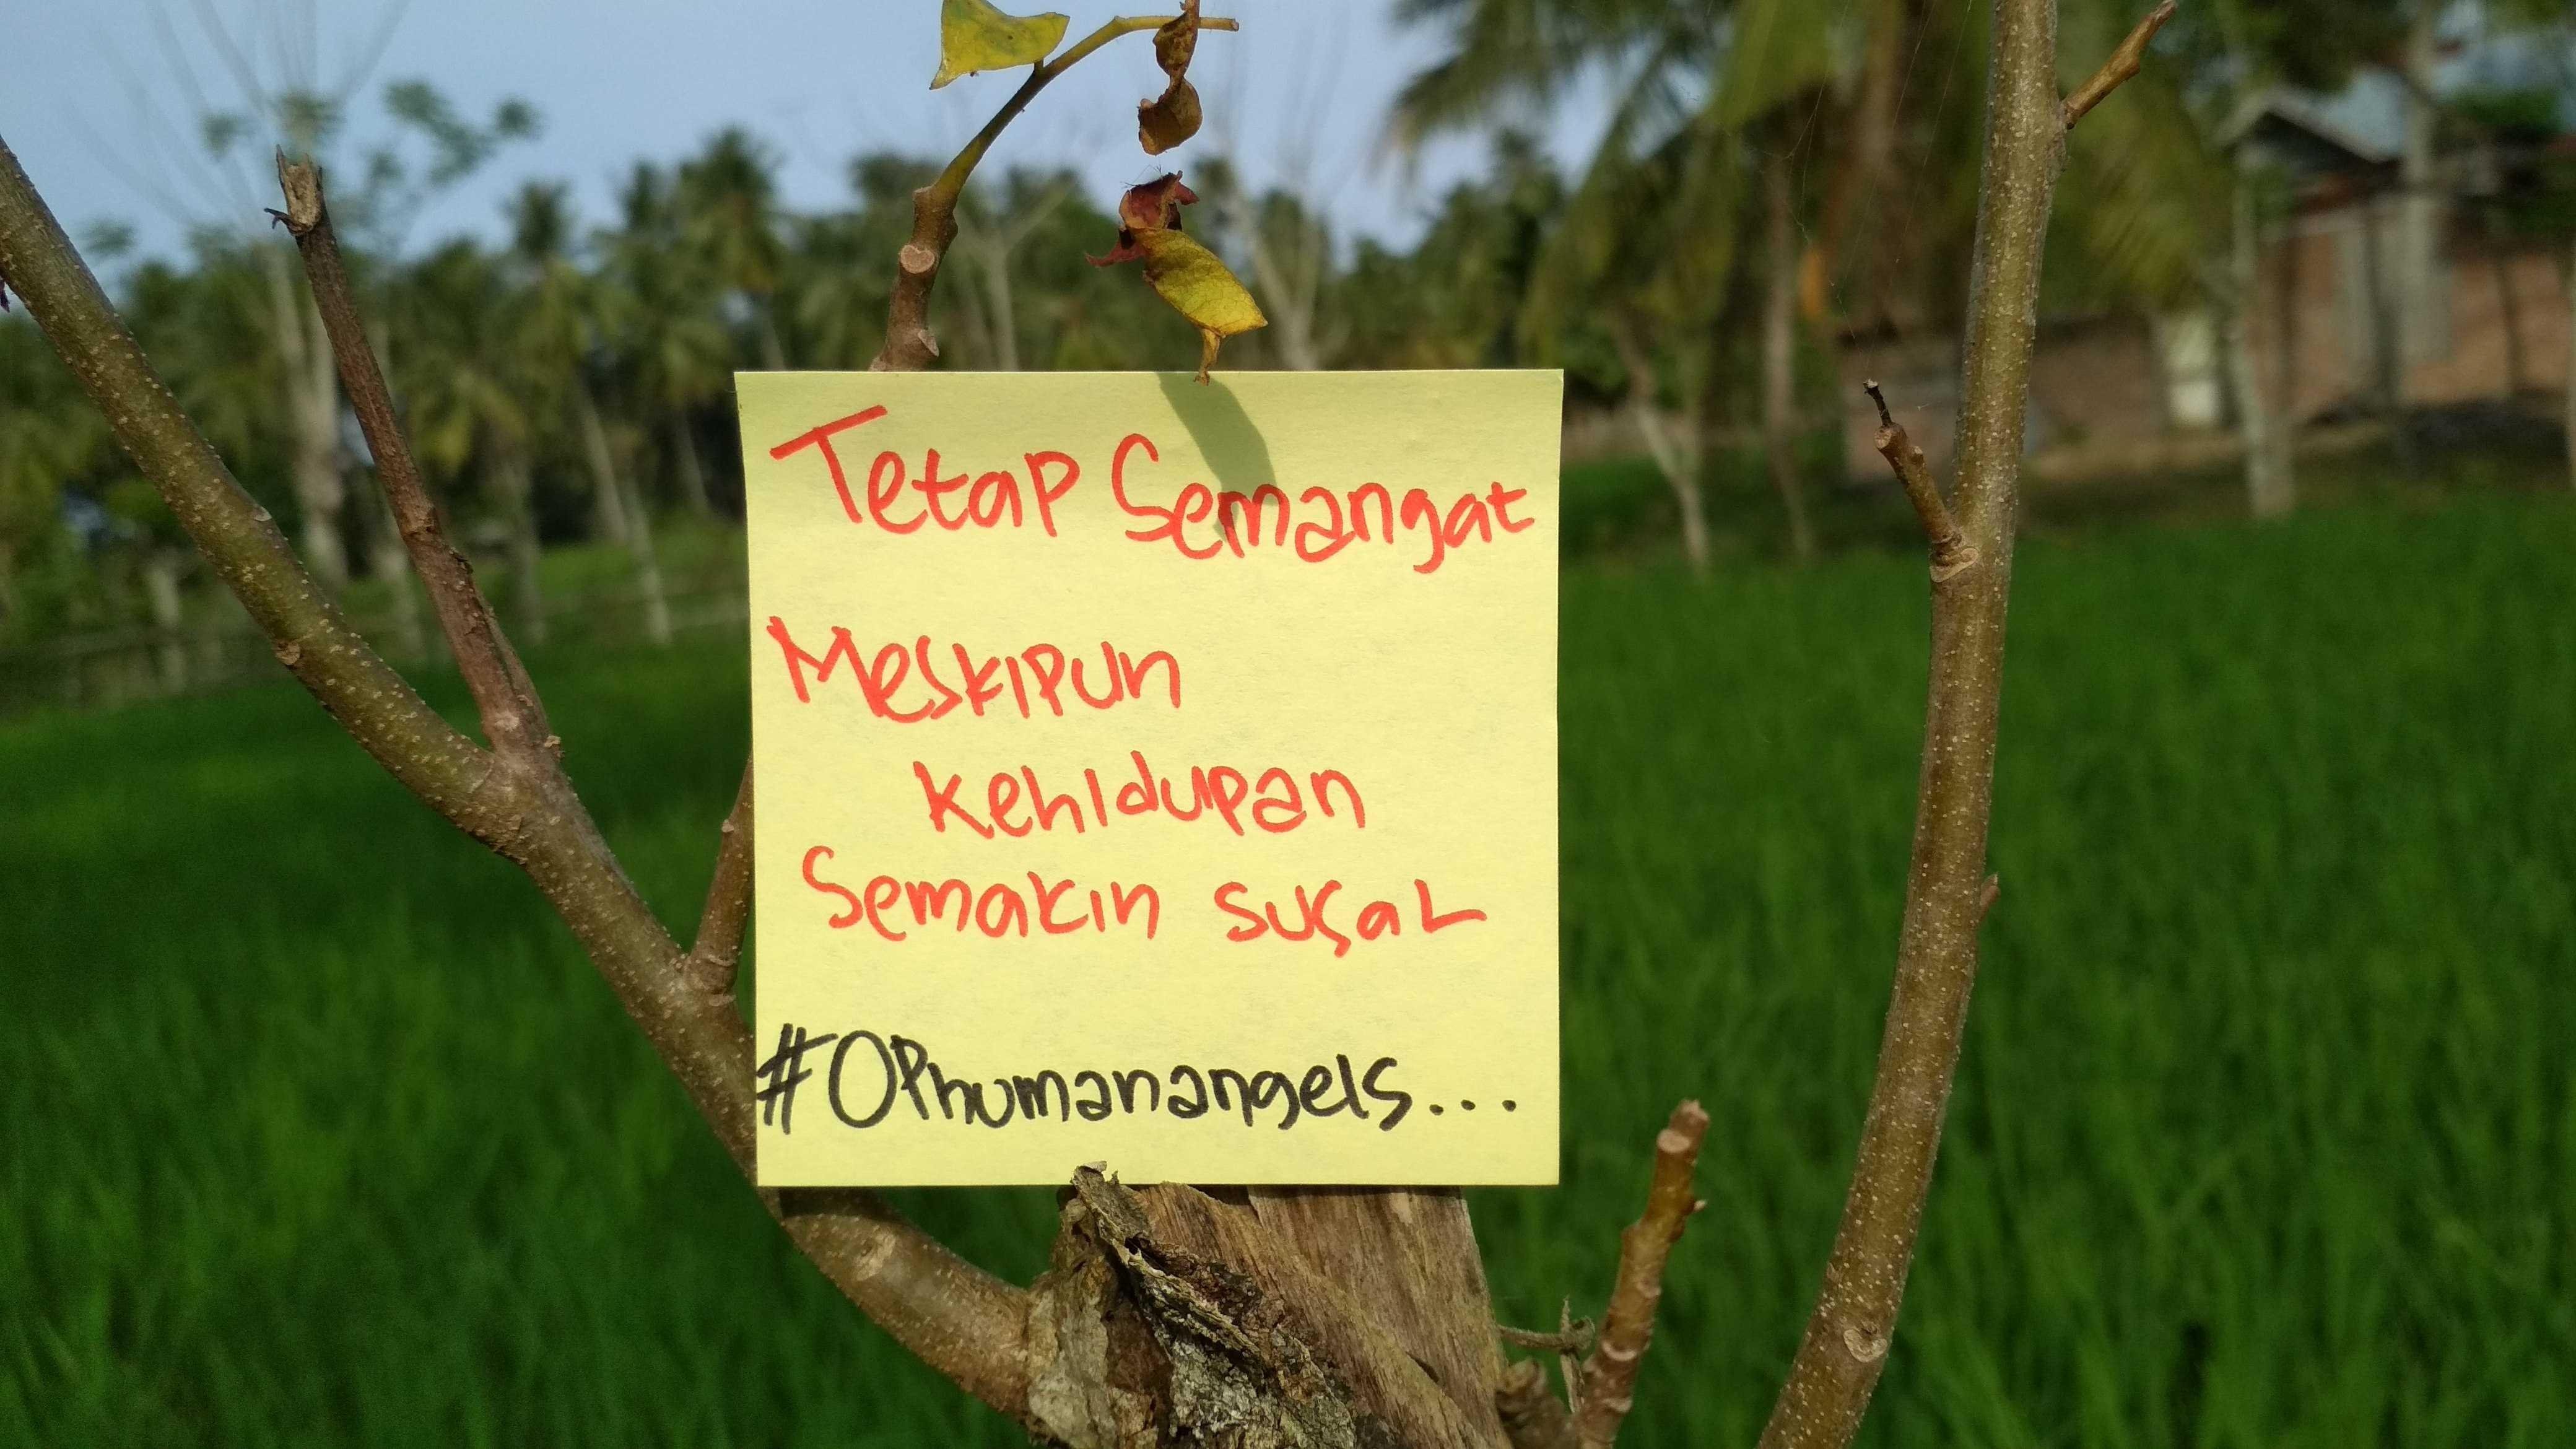 Tetap Semangat
Meskipun
kehidupan
Semakin susah
#OPhumanangels...